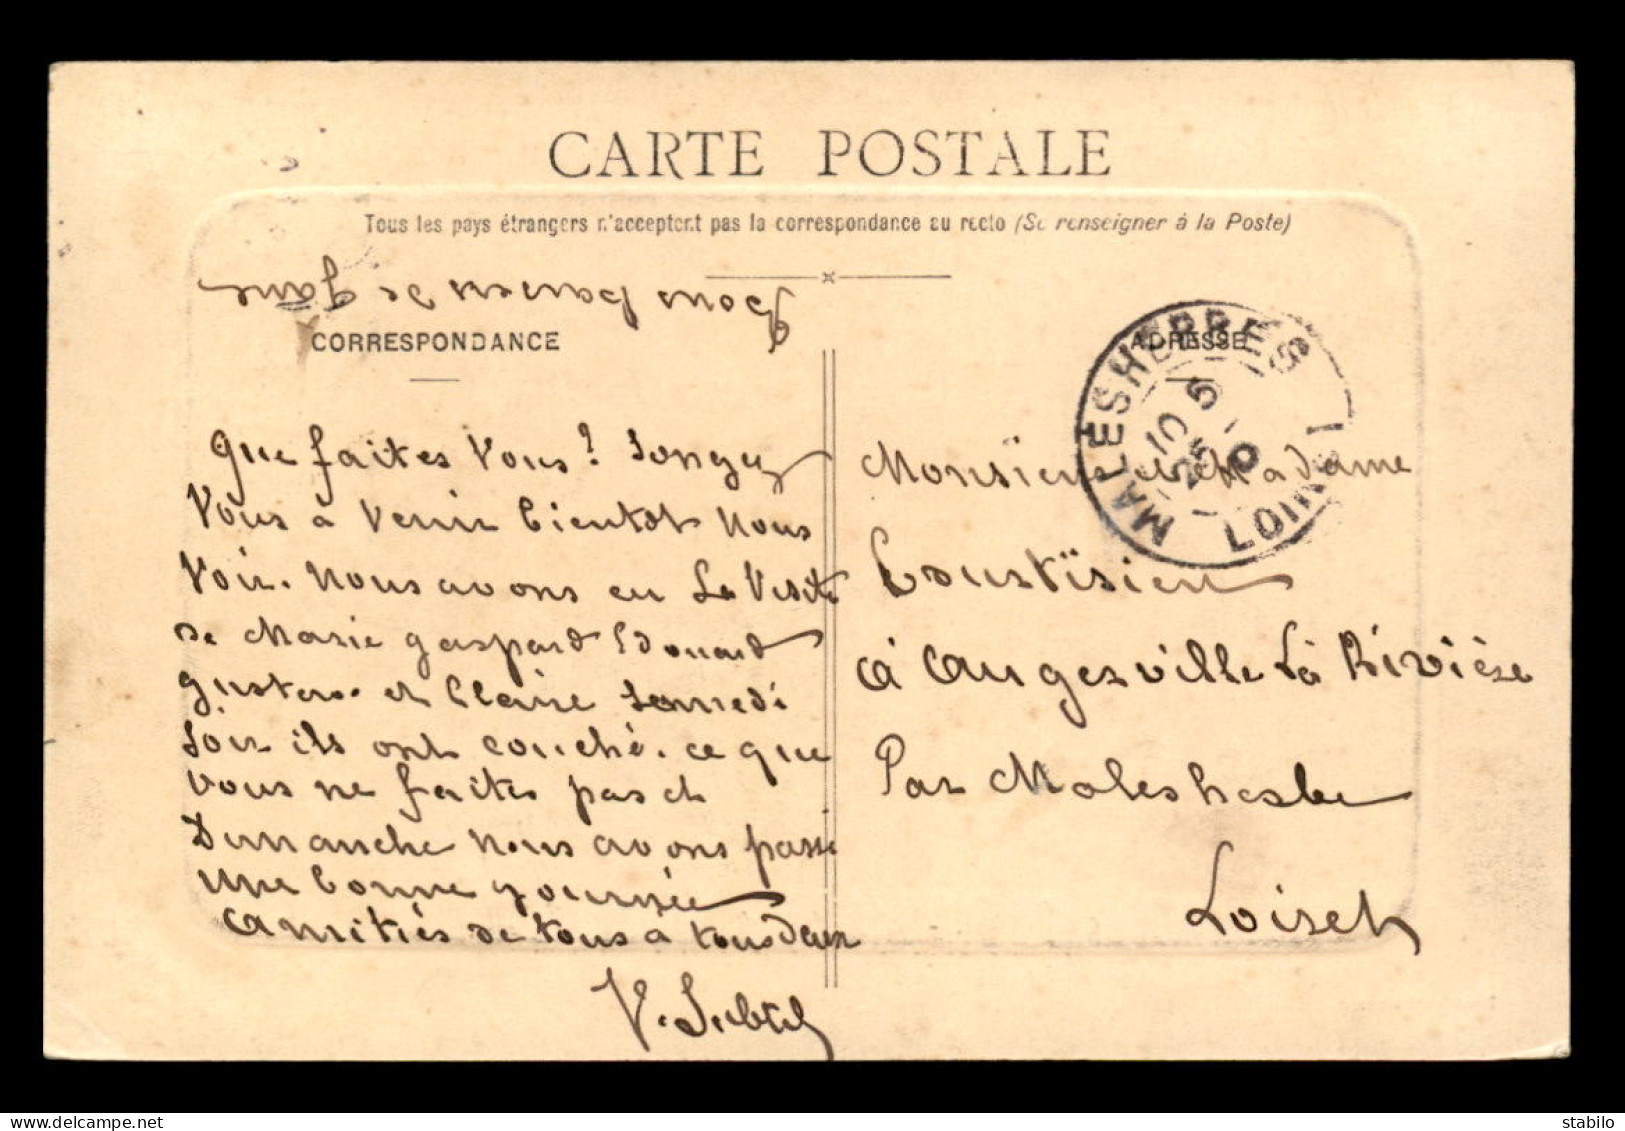 CARTE POSTALE
Tous les pays étrangers n'acceptent pas la correspondance au recto (Se renseigner à la Poste)
de
CORRESPONDANCE
ADRESSE
MALESHERBES
10 5
25
LOIRET
Que faites Vous? Songez
Vous a Venir bientôt nous
Voir. Nous avons eu La Visite
de Marie gaspard Edouard
gustave et Claire Samedi
soir ils ont couché. ce que
vous ne faites pas et
Dimanche nous avons passé
une bonne journée
amitiés de tous a tous deux
V.
Monsieur et Madame
à augerville La Rivière
Par Malesherbe
Loiret
stabilo